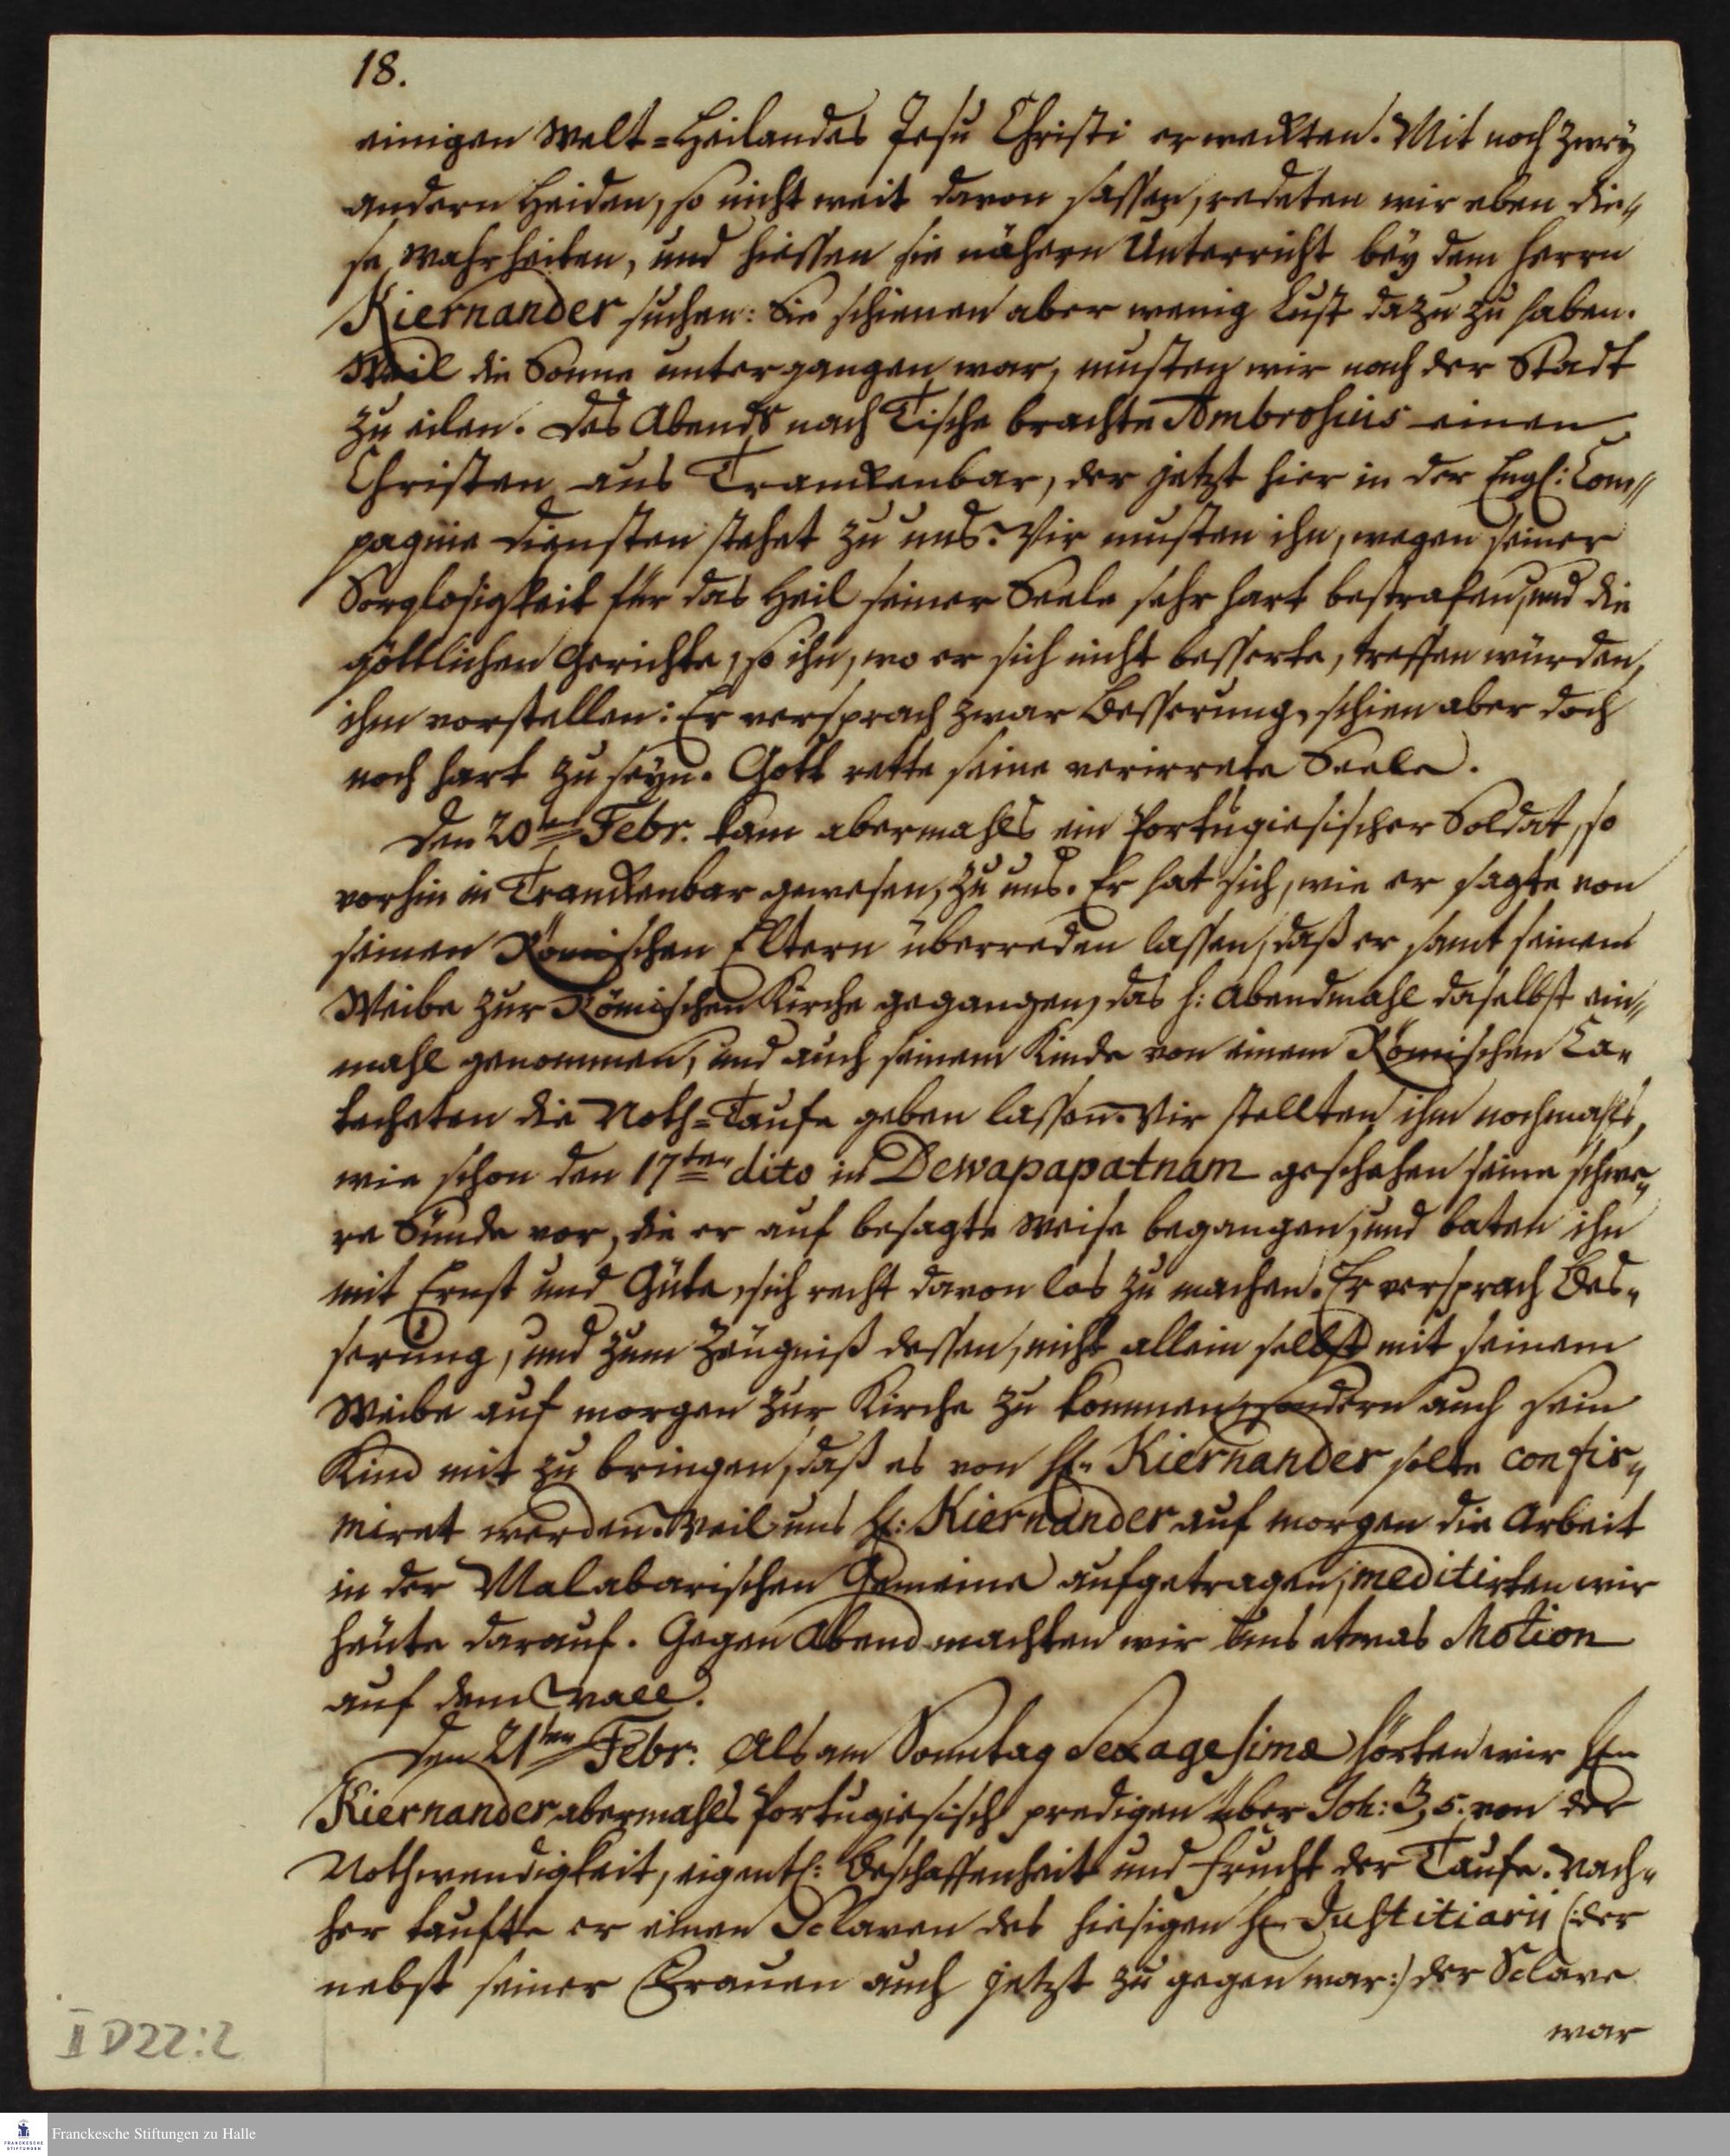 18.
einigen Welt=Heilandes Jesu Christi erweckten. Mit noch zwey
andern Heiden, so nicht weit davon sassen, redeten wir eben die„
se Wahrheiten, und hiessen sie nähern Unterricht bey dem Herrn
Kiernander suchen: Sie schienen aber wenig Lust dazu zu haben.
Weil die Sonne untergangen war, musten wir nach der Stadt
zu eilen. Des Abends nach Tische brachte Ambrosius einen
Christen aus Tranckenbar, der jetzt hier in der Engl: Com„
pagnie Diensten stehet zu uns. Wir musten ihn, wegen seiner
Sorglosigkeit für das Heil seiner Seele sehr hart bestrafen, und die
göttlichen Gerichte, so ihn, wo er sich nicht besserte, treffen würden,
ihm vorstellen: Er versprach zwar Besserung, schien aber doch
noch hart zu seyn. Gott rette seine verirrete Seele.
Den 20ten Febr. kam abermahls ein Portugiesischer Soldat, so
vorhin in Tranckenbar gewesen, zu uns. Er hat sich, wie er sagte von
seinen Römischen Eltern überreden lassen, daß er samt seinem
Weibe zur Römischen Kirche gegangen, das h: Abendmahl daselbst ein„
mahl genommen, und auch seinem Kinde von einem Römischen Ca„
techeten die Noth=Taufe geben lassen. Wir stellten ihm nochmahls,
wie schon den 17ten dito in Dewapapatnam geschehen seine schwe„
re Sünde vor, die er auf besagte Weise begangen, und baten ihn
mit Ernst und Güte, sich recht davon los zu machen. Er versprach Bes„
serung, und zum Zeugniß dessen, nicht allein selbst mit seinem
Weibe auf morgen zur Kirche zu kommen, sondern auch sein
Kind mit zu bringen, daß es von Hn Kiernander solte confir„
miret werden. Weil uns H: Kiernander auf morgen die Arbeit
in der Malabarischen Gemeine aufgetragen, meditirten wir
heute darauf. Gegen Abend machten wir uns etwas Motion
auf dem Wall.
Den 21ten Febr. Als am Sonntag Sexagesimæ hörten wir Hn
Kiernander abermahls Portugiesisch predigen über Joh: 3, 5. von der
Nothwendigkeit, eigentl: Beschaffenheit und Frucht der Taufe. Nach„
her taufte er einen Sclaven des hiesigen Hn Justitiarii (:der
nebst seiner Frauen auch jetzt zu gegen war:) der Sclave
war
II D22:2
Franckesche Stiftungen zu Halle
FRANCKESCHE
STIFTUNGEN